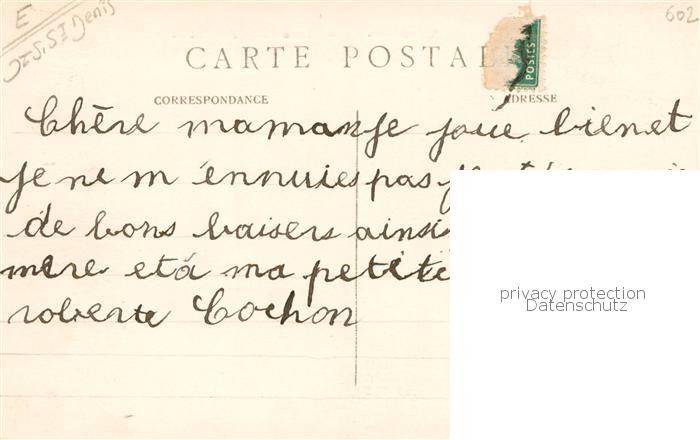 E
J25 St Denis
602
CARTE POSTAL
POSTES
CORRESPONDANCE
ADRESSE
Chère maman je joue bien et
je ne m'ennuies pas
de bons baisers ainsi
mere et à ma petite
roberte Cochon
privacy protection
Datenschutz